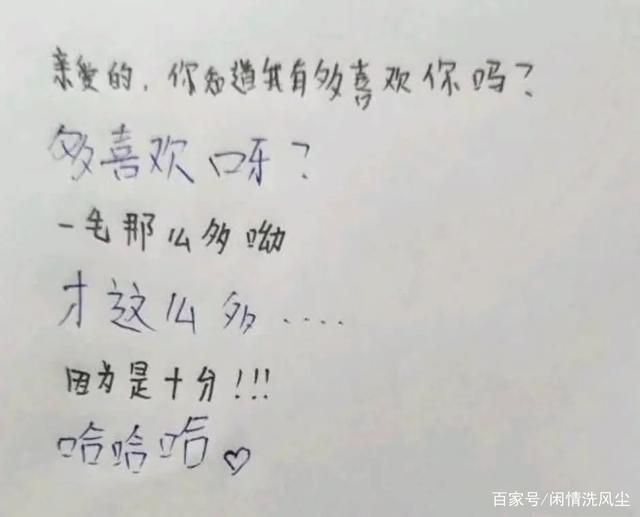 亲爱的，你知道我有多喜欢你吗？
多喜欢呀？
一毛那么多呦
才这么多....
因为是十分！！！
哈哈哈♡
百家号/闲情洗风尘